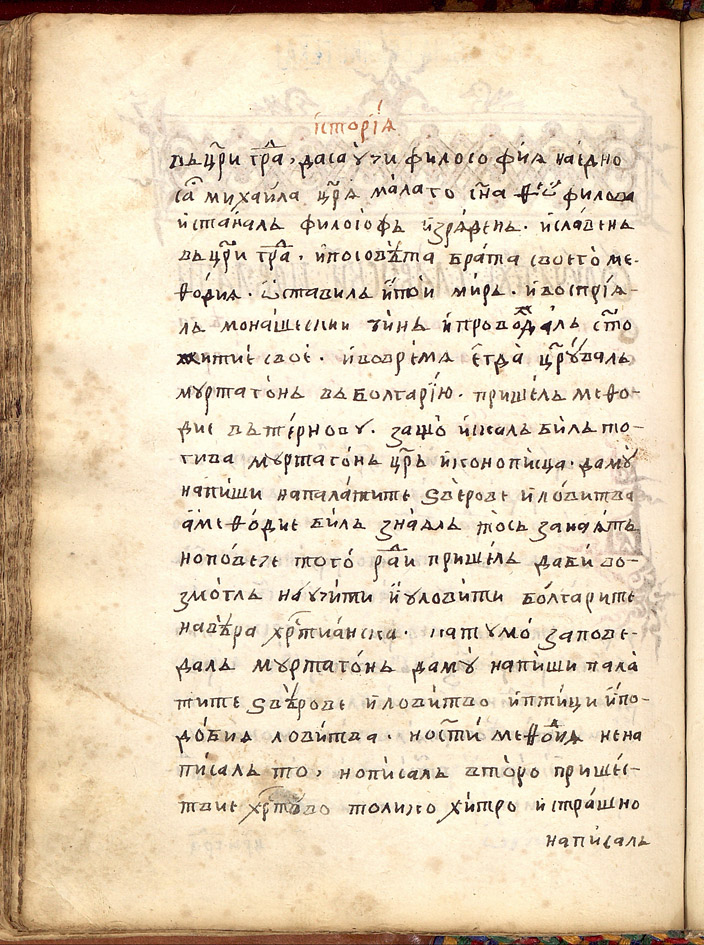 їсторїѧ
въ цр҃и гра̑д, да сѧ учи филосо фиѧ наедно
са̑ михаила цр҃ѧ малаго сн҃а ѳео̑филова
и станалъ философъ изрѧденъ. и славенъ
въ цр҃и гра̑д. и по совѣта брата своего ме-
ѳодиѧ. ѡставилъ и той миръ. и воспрїѧ-
лъ монашески чинъ и проводжалъ ст҃о
житие свое. и во времѧ егда цр҃увалъ
муртагонъ въ болгарїю. пришелъ меѳо-
дие въ терновъ. защо искалъ билъ то-
гива муртагонъ цр҃ъ иконописца. да му
напиши на палатите ѕвѣрове и ловитва
а меѳодие билъ знаѧлъ тосъ занаѧтъ
но повече того ра̑ди пришелъ да би во-
змоглъ научити и уловити болгарите
на вѣра хр҃тиѧнска. на тумо запове-
далъ муртагонъ да му напиши пала
тите ѕвѣрове и ловитво и птици и по-
добиѧ ловитва. но ст҃и меѳодиѧ не на
писалъ то, но писалъ второ пришес-
твие хр҃тово толико хитро и страшно
написалъ